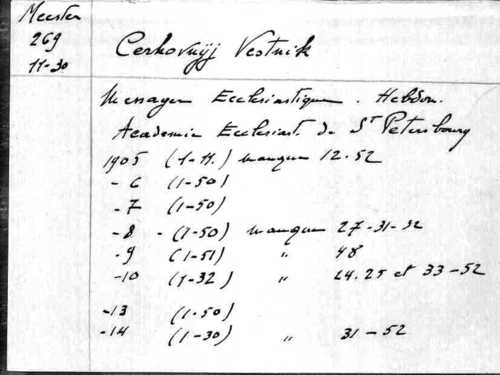 Meester
269
11-30
Cerkovnyj Vestnik
Messager Ecclésiastique. Hebdom.
Académie Ecclésiast. de St Petersbourg
1905 (1-11.) manque 12-52
- 6 (1-50)
- 7 (1-50)
- 8 - (1-50) manque 27-31-32
- 9 (1-51) " 48
- 10 (1-32) " 24.25 et 33-52
- 13 (1-50)
- 14 (1-30) " 31-52